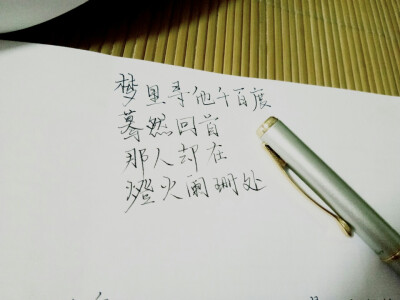 梦里寻他千百度
蓦然回首
那人却在
燈火阑珊处